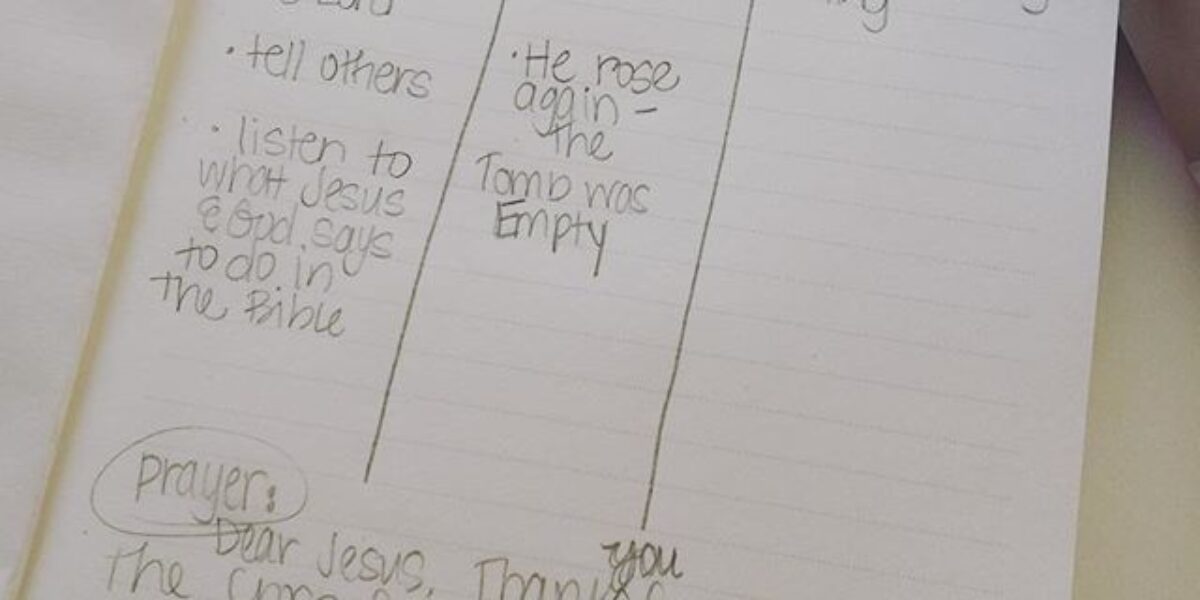 • tell others
• listen to
what Jesus
& God, says
to do in
the Bible
• He rose
again –
the
Tomb was
Empty
prayer:
Dear Jesus, Thank you
The